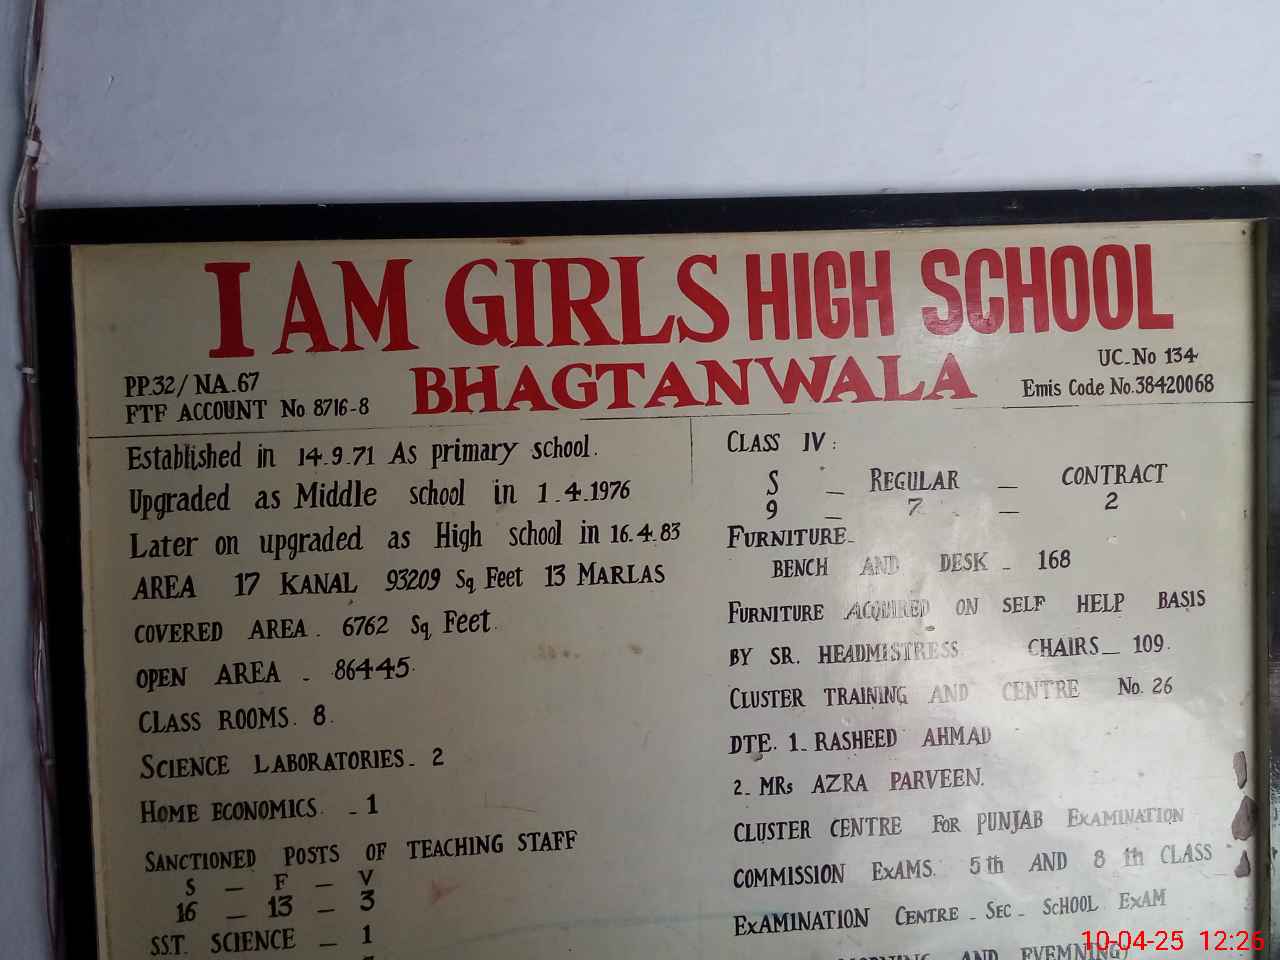 I AM GIRLS HIGH SCHOOL
BHAGTANWALA
PP.32/ NA-67
FTF ACCOUNT No 8716-8
UC-No 134
Emis Code No.38420068
Established in 14.9.71 As primary school.
Upgraded as Middle school in 1.4.1976
Later on upgraded as High school in 16.4.83
AREA 17 KANAL 93209 Sq Feet 13 MARLAS
COVERED AREA. 6762 Sq Feet.
OPEN AREA - 86445.
CLASS ROOMS. 8.
SCIENCE LABORATORIES- 2
HOME ECONOMICS. - 1
SANCTIONED POSTS OF TEACHING STAFF
S - F - V
16 - 13 - 3
SST. SCIENCE - 1
CLASS IV:
S - REGULAR - CONTRACT
9 - 7 - 2
FURNITURE-
BENCH AND DESK - 168
FURNITURE ACQUIRED ON SELF HELP BASIS
BY SR. HEADMISTRESS. CHAIRS- 109.
CLUSTER TRAINING AND CENTRE No. 26
DTE. 1- RASHEED AHMAD
2- MRs AZRA PARVEEN.
CLUSTER CENTRE FOR PUNJAB EXAMINATION
COMMISSION EXAMS. 5th AND 8th CLASS
EXAMINATION CENTRE - SEC - SCHOOL EXAM
AND EVEMNING)
10-04-25 12:26